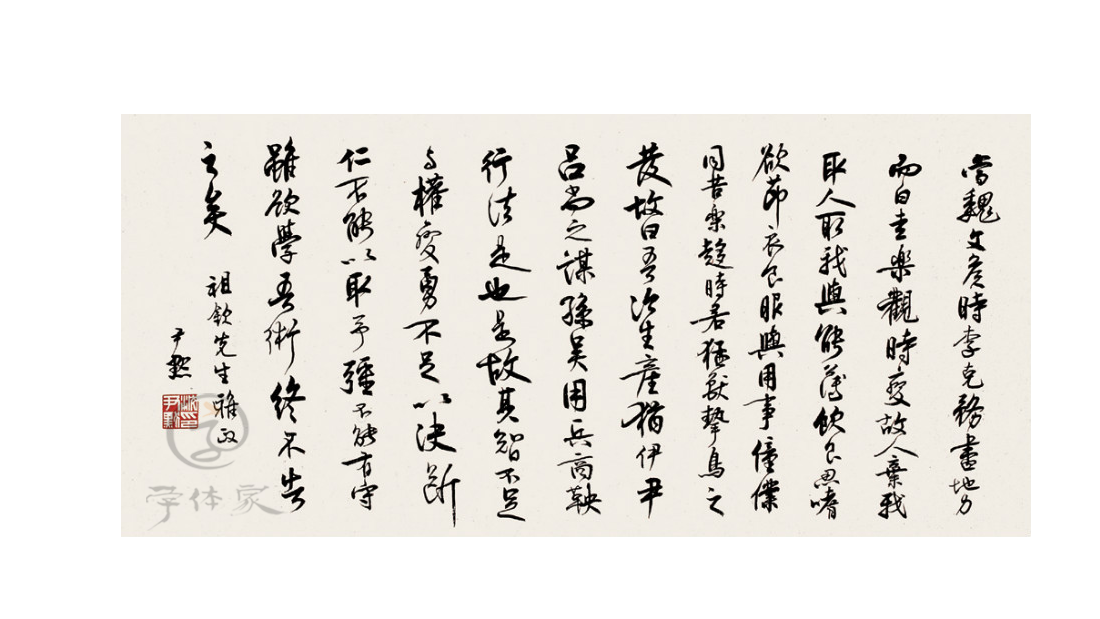 當魏文侯時李克務盡地力
而白圭樂觀時變故人棄我
取人取我與能薄飲食忍嗜
欲節衣食服與用事僮僕
同苦樂趨時若猛獸擊鳥之
發故曰吾治生產猶伊尹
呂尚之謀孫吳用兵商鞅
行法是也是故其智不足
与權變勇不足以決斷
仁不能以取予彊不能有守
雖欲學吾術終不告
之矣
祖欽先生雅政
尹默
沈尹默印
字体家